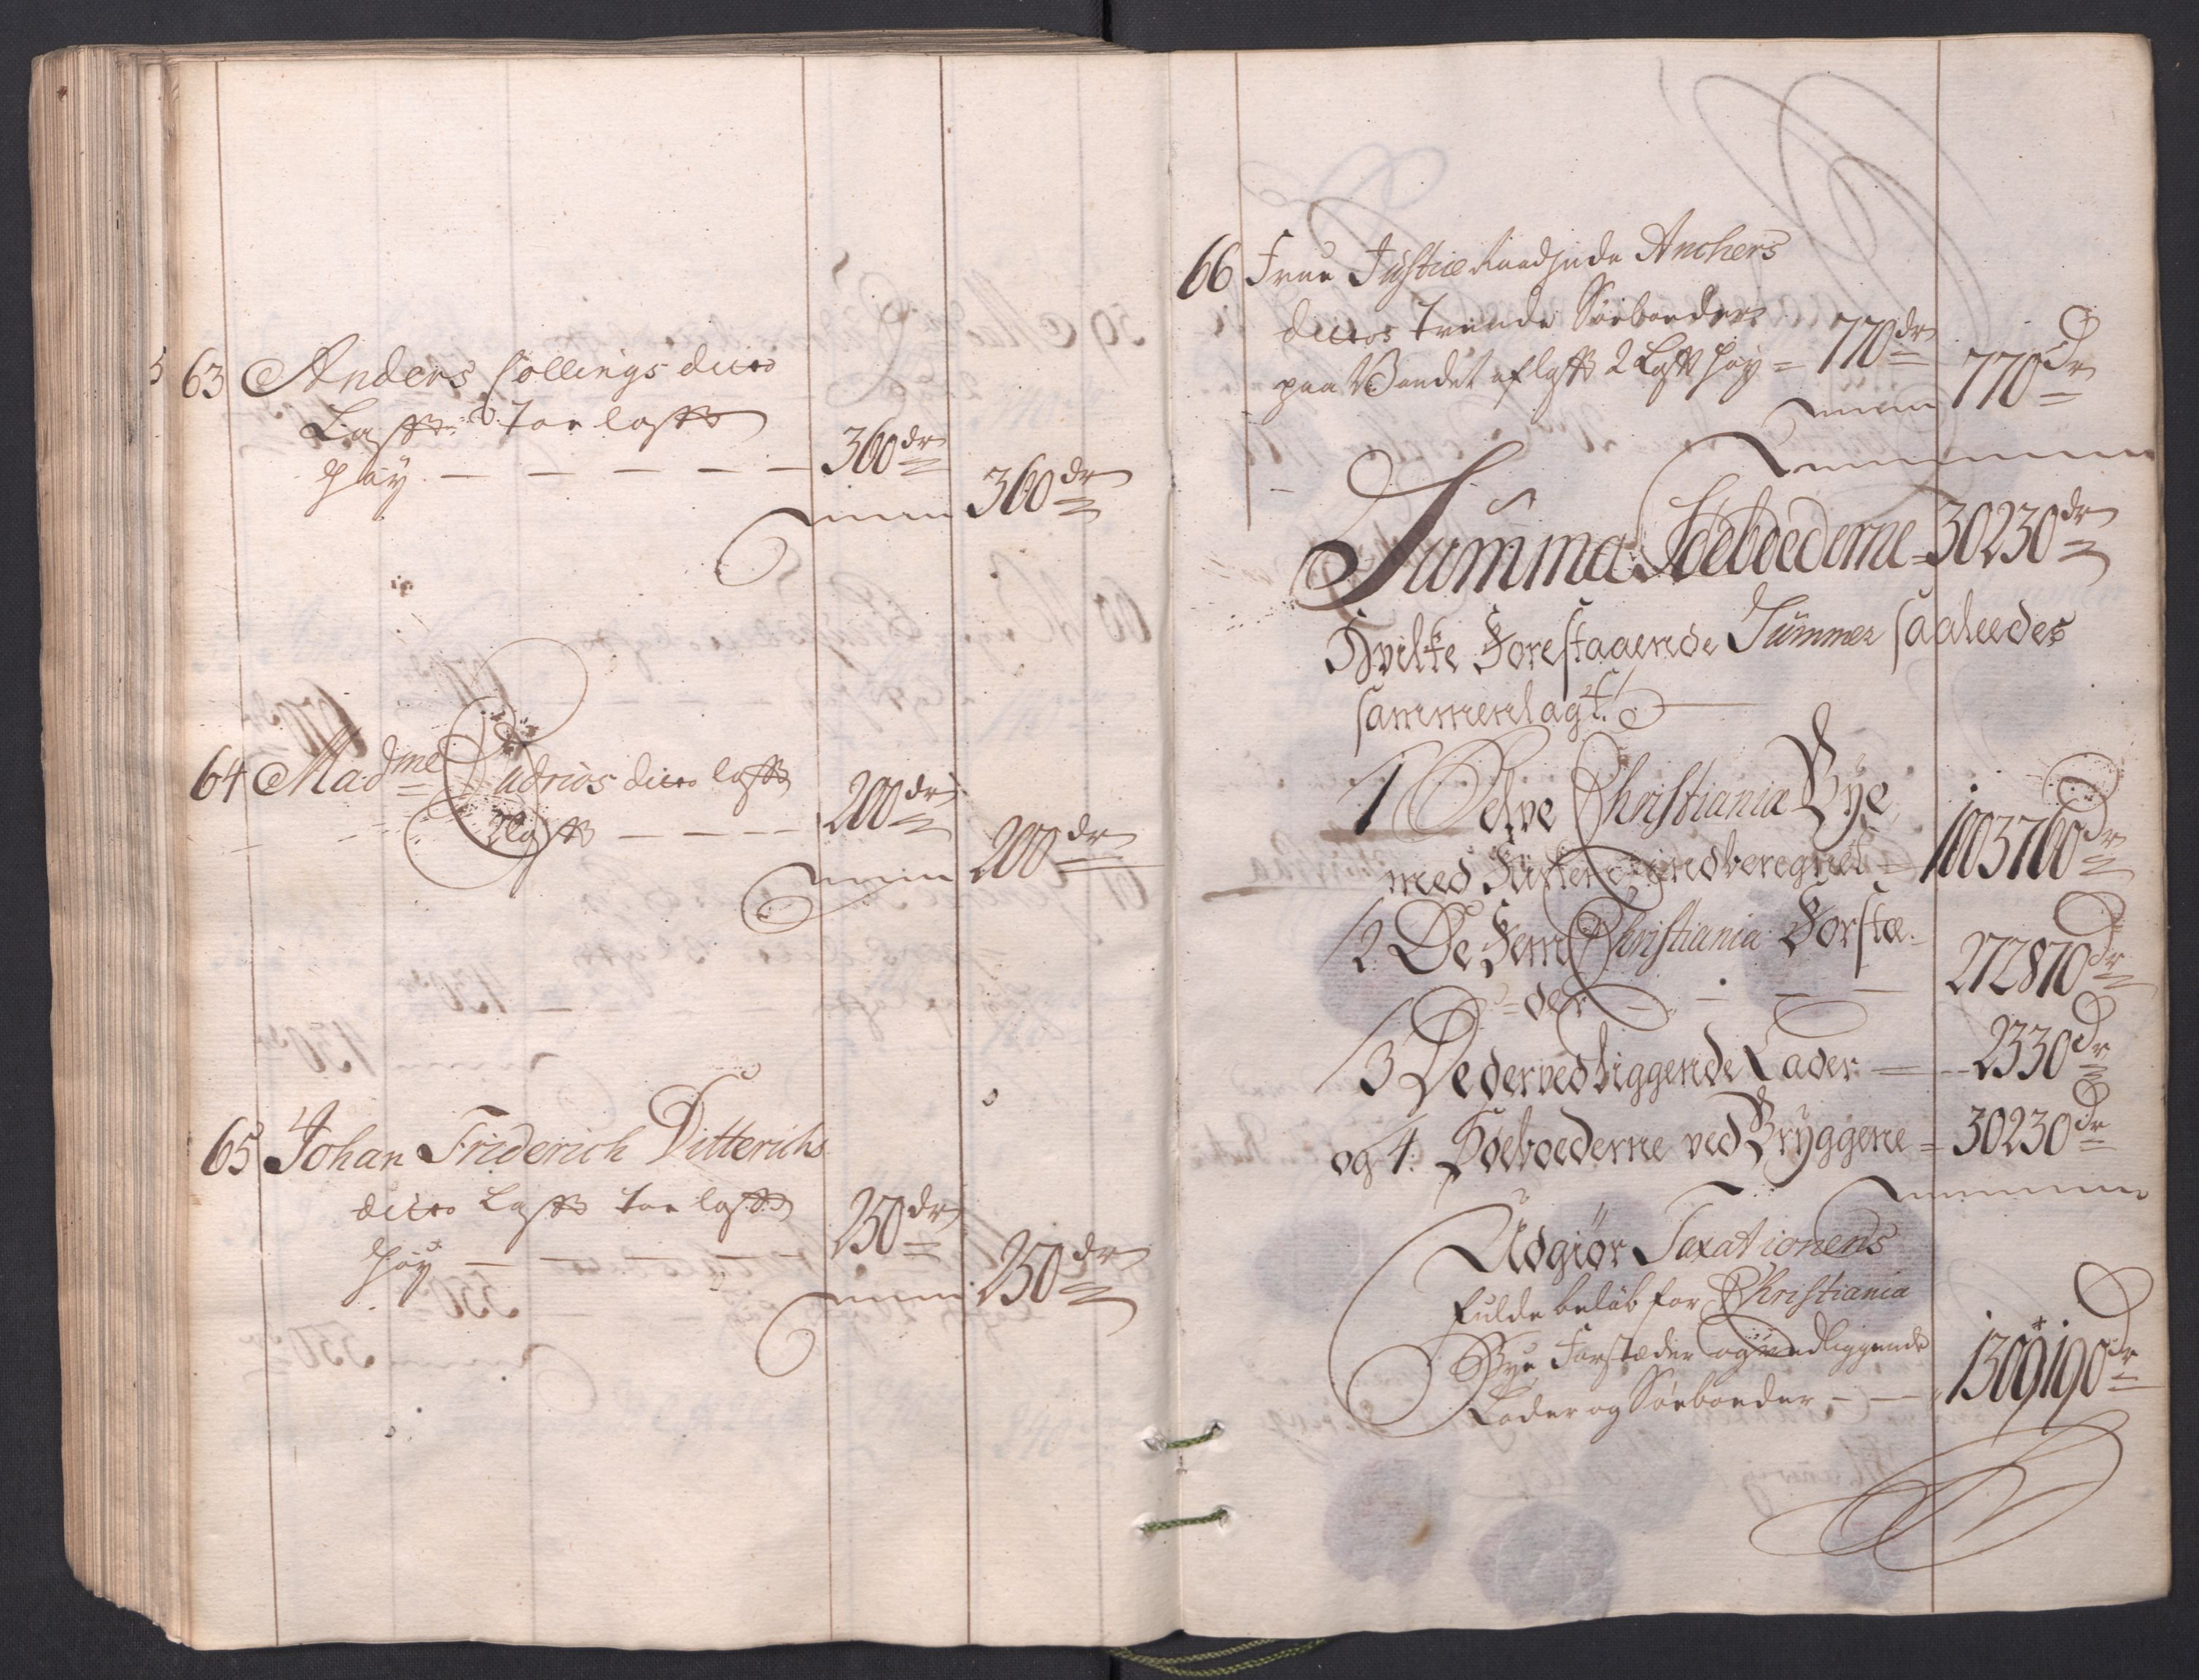 63 Anders Collings ditto
Lafft toe lofft
høy — — — — — 360 dr
360 dr
64 Mad.me Cudrios ditto lofft
2 lofft — — — — 200 dr
200 dr
65 Johan Friderich Ditterichs
ditto Lofft toe lofft
høy — — — — — 250 dr
250 dr
66 Frue Justice Raadinde Anchers
dittos Trende Søeboeder
paa Vandet aflofft 2 Lofft høy = 770 dr
770 dr
Summa Søeboederne = 30230 dr
Hvilke Forestaaende Summer saaleedes
sammenlagt.
1 Selve Christianiæ Bye
med indberegnet = 1003760 dr
2. De Fem Christianiæ Forstæ-
=der — — — 272870 dr
3 De derved liggende Lader — 2330 dr
og 4. Søeboederne ved Bryggene = 30230 dr
Udgiør Taxationens
fulde beløb for Christiania
Bye Forstæder og vedliggende
Lader og Søeboeder — — 1309190 dr